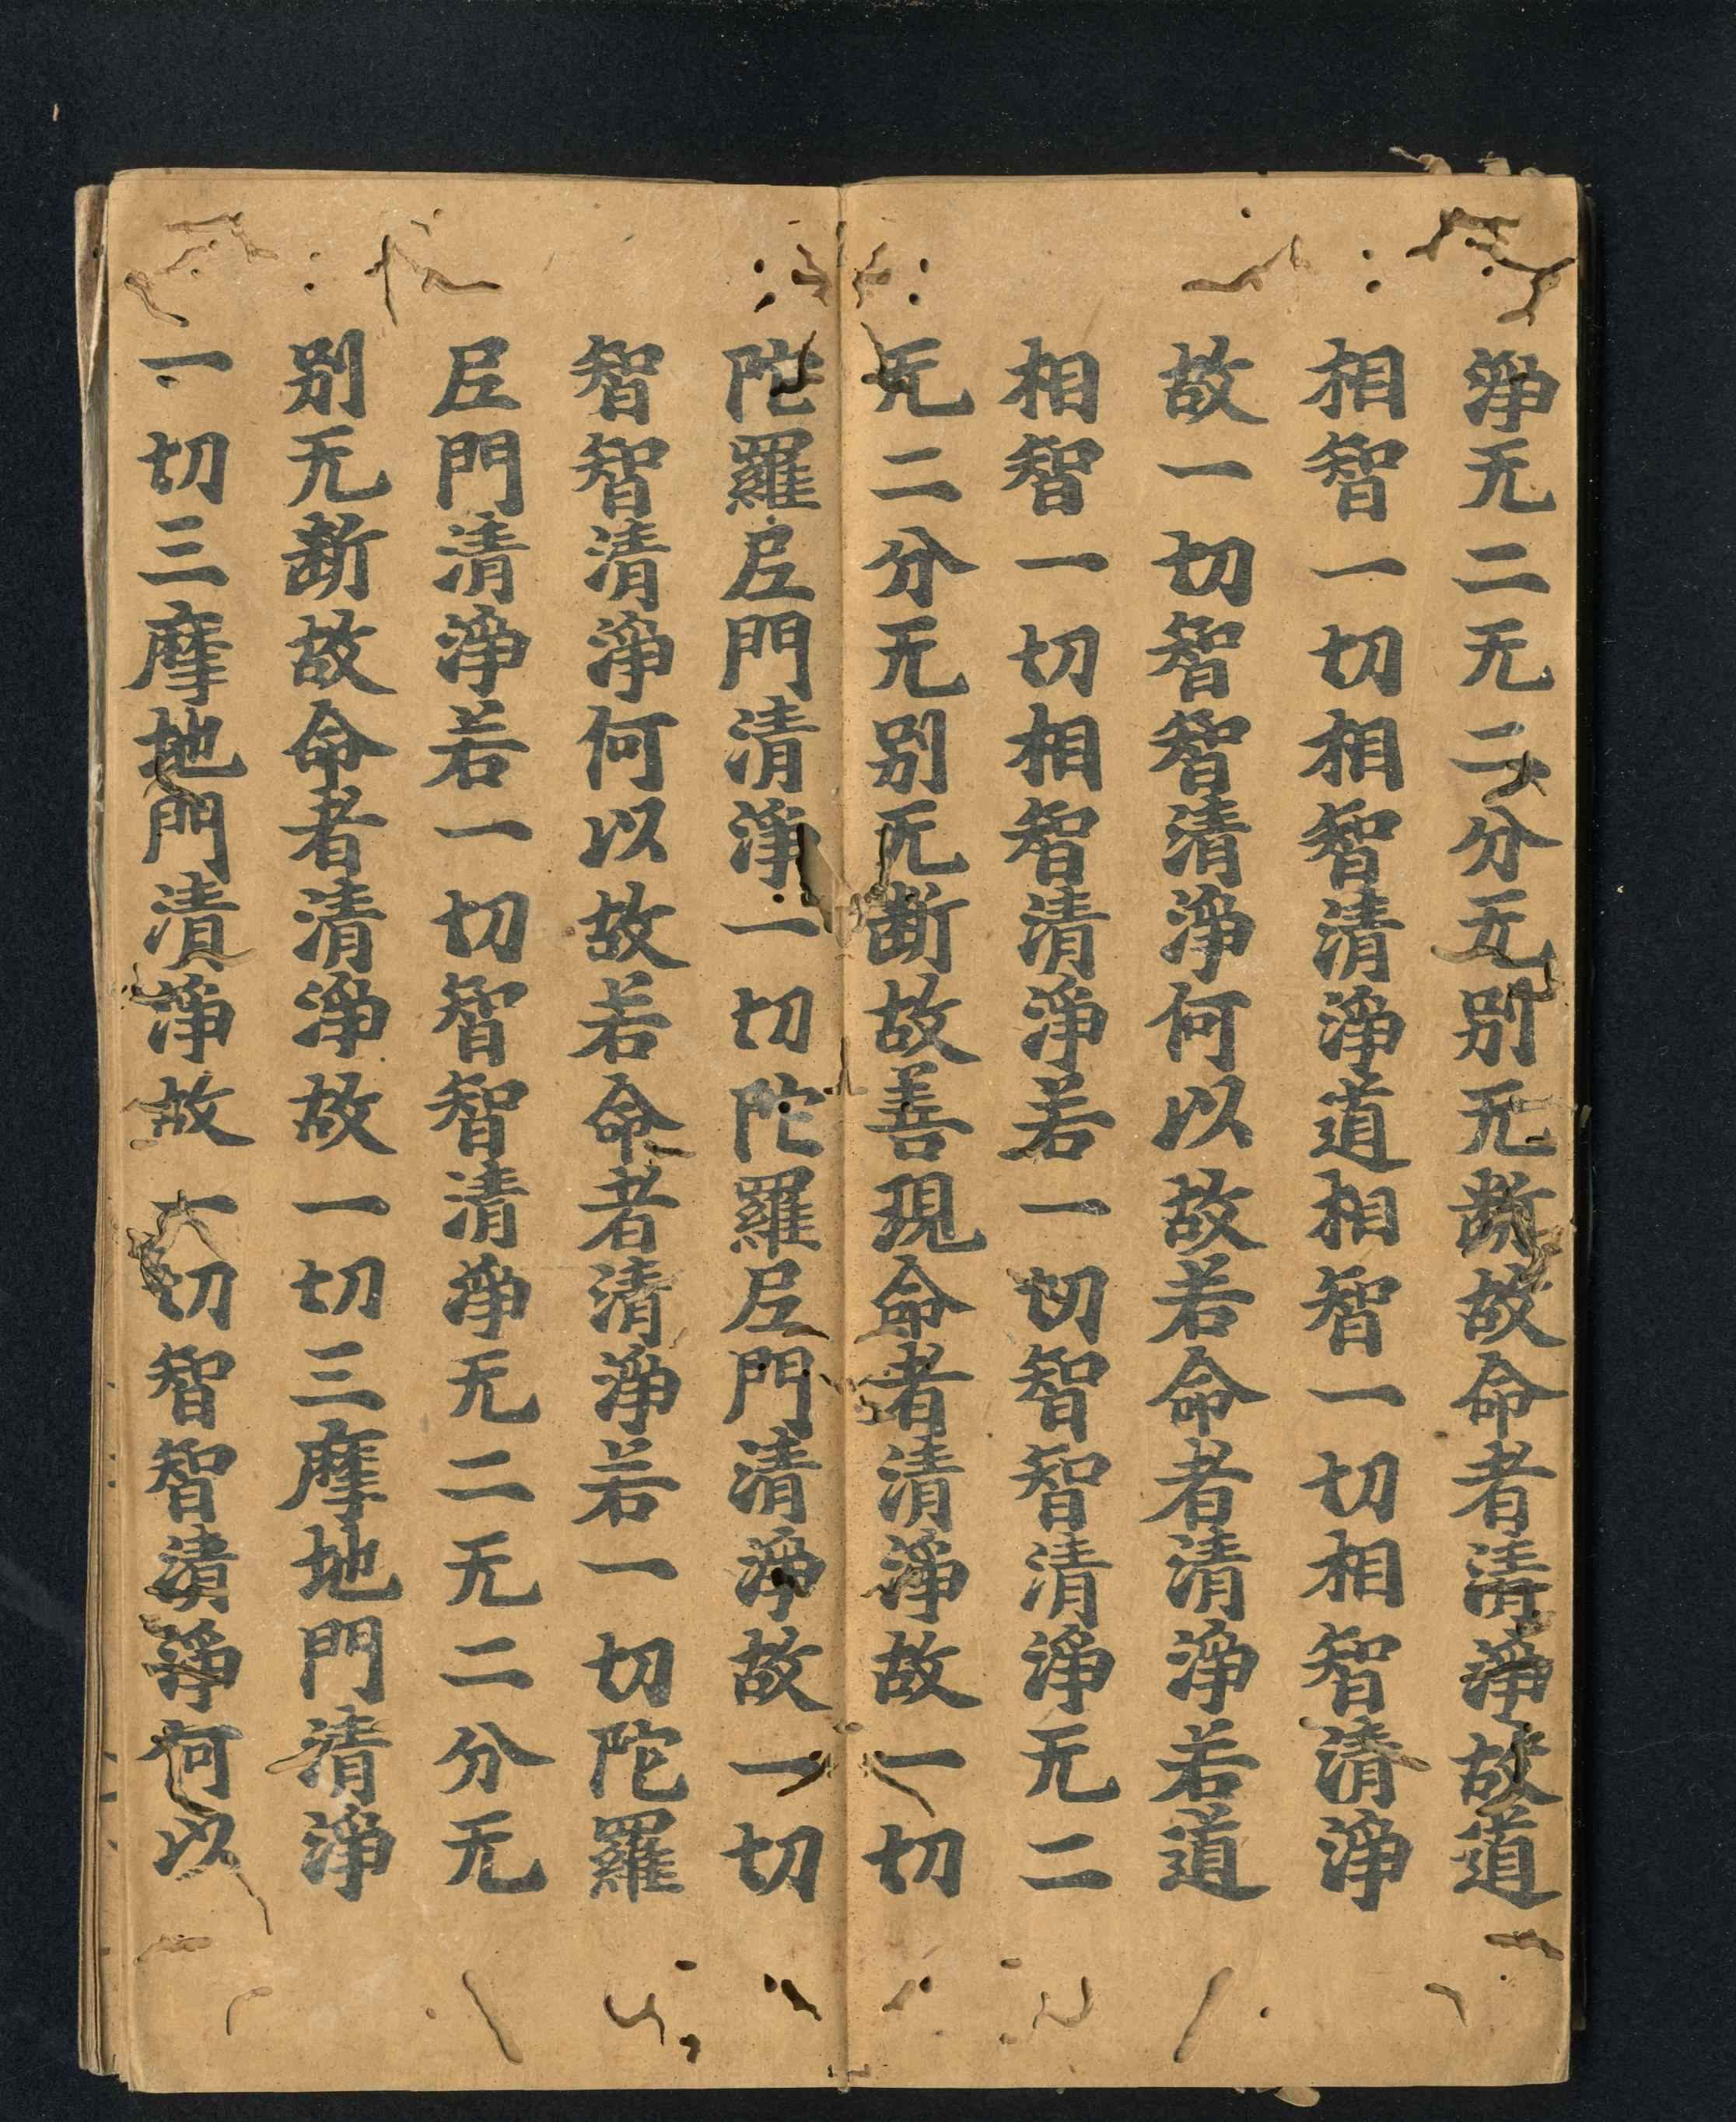 淨无二无二分无别无斷故命者清淨故道
相智一切相智清淨道相智一切相智清淨
故一切智智清淨何以故若命者清淨若道
相智一切相智清淨若一切智智清淨无二
无二分无别无斷故善現命者清淨故一切
陀羅尼門清淨一切陀羅尼門清淨故一切
智智清淨何以故若命者清淨若一切陀羅
尼門清淨若一切智智清淨无二无二分无
别无斷故命者清淨故一切三摩地門清淨
一切三摩地門清淨故一切智智清淨何以